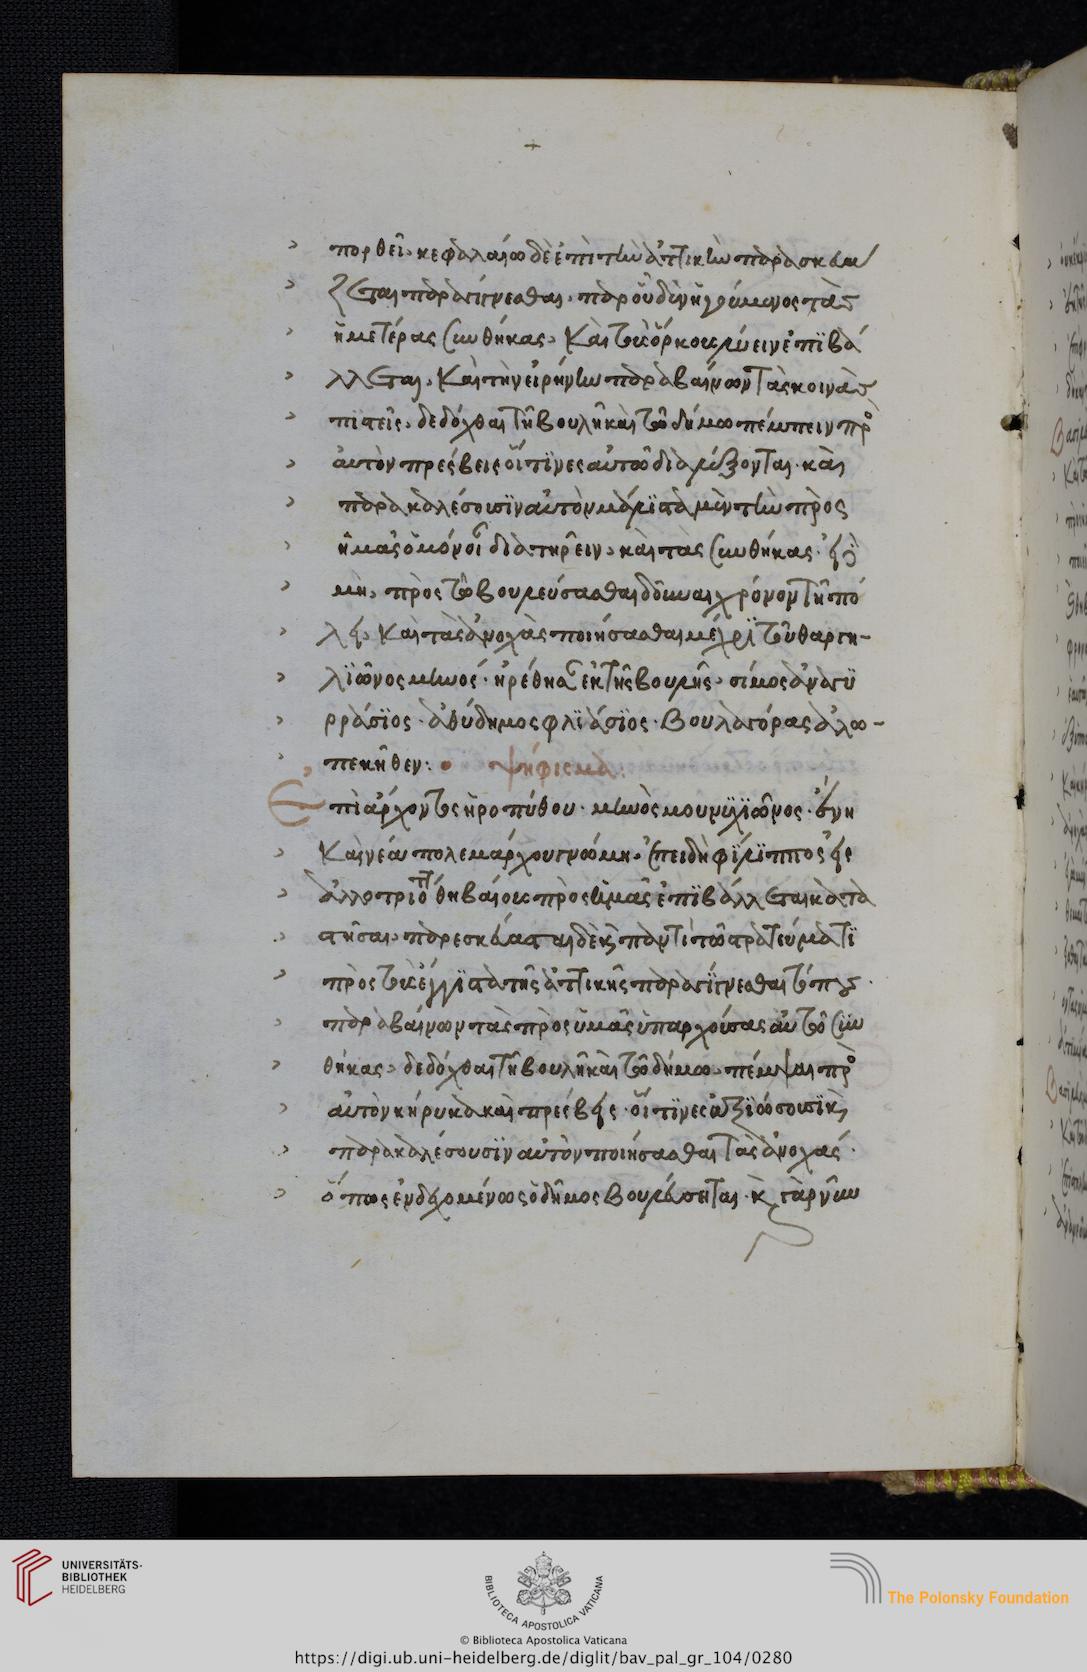 πορθεῖ. κεφαλαίω δὲ ἐπὶ τὴν ἀττικὴν παρασκευά
ζεται παραγίγνεσθαι, παρ' οὐδὲν ἡγούμενος τὰς
ἡμετέρας συνθήκας. καὶ τοὺς ὅρκους λύειν ἐπϊβά
λλεται. καὶ τὴν εἰρήνην παραβαίνων τὰς κοινὰς
πίστεις. δεδόχθαι τῆ βουλῆ καὶ τῶ δήμω πέμπειν πρὸς
αὐτὸν πρέσβεις οἵτϊνες αὐτῶ διαλέξονται. καὶ
παρακαλέσουσϊν αὐτὸν μάλϊστα μὲν τὴν πρὸς
ἡμᾶς ὁμόνοιαν διατηρεῖν. καὶ τὰς συνθήκας. εἰ δὲ
μὴ, πρὸς τὸ βουλεύσασθαι δοῦναι χρόνον τῆ πό
λει. καὶ τὰς ἀνοχὰς ποιήσασθαι μέχρϊ τοῦ θαργη-
λϊῶνος μηνός. ἡρέθησαν ἐκ τῆς βουλῆς. σίμος ἀναγϋ
ρράσϊος. εὐθύδημος φλϊάσϊος. βουλαγόρας ἀλω-
πεκῆθεν:
ψήφισμα:
Ἐπὶ ἄρχοντος ἡροπύθου. μηνὸς μουνϋχϊῶνος. ἕνη
καὶ νέα πολεμάρχου γνώμη. ἐπειδὴ φίλϊππος εἰς
ἀλλοτριότητα θηβαίους πρὸς ὑμᾶς ἐπϊβάλλεται κατα
στῆσαι. παρεσκεύασται δὲ καὶ παντὶ τῶ στρατεύματϊ
πρὸς τοὺς ἔγγϊστα τῆς ἀττικῆς παραγίγνεσθαι τόπους.
παραβαίνων τὰς πρὸς ὑμᾶς ὑπαρχούσας αὐτῶ συν
θήκας. δεδόχθαι τῆ βουλῆ καὶ τῶ δήμω. πέμψαι πρὸς
αὐτὸν κήρυκα καὶ πρέσβεις. οἵτϊνες ἀξϊώσουσϊ καὶ
παρακαλέσουσϊν αὐτὸν ποιήσασθαι τὰς ἀνοχάς.
ὅπως ἐνδεχομένως ὁ δῆμος βουλεύσηται. καὶ γὰρ νῦν
UNIVERSITÄTS-
BIBLIOTHEK
HEIDELBERG
BIBLIOTECA APOSTOLICA VATICANA
The Polonsky Foundation
© Biblioteca Apostolica Vaticana
https://digi.ub.uni-heidelberg.de/diglit/bav_pal_gr_104/0280